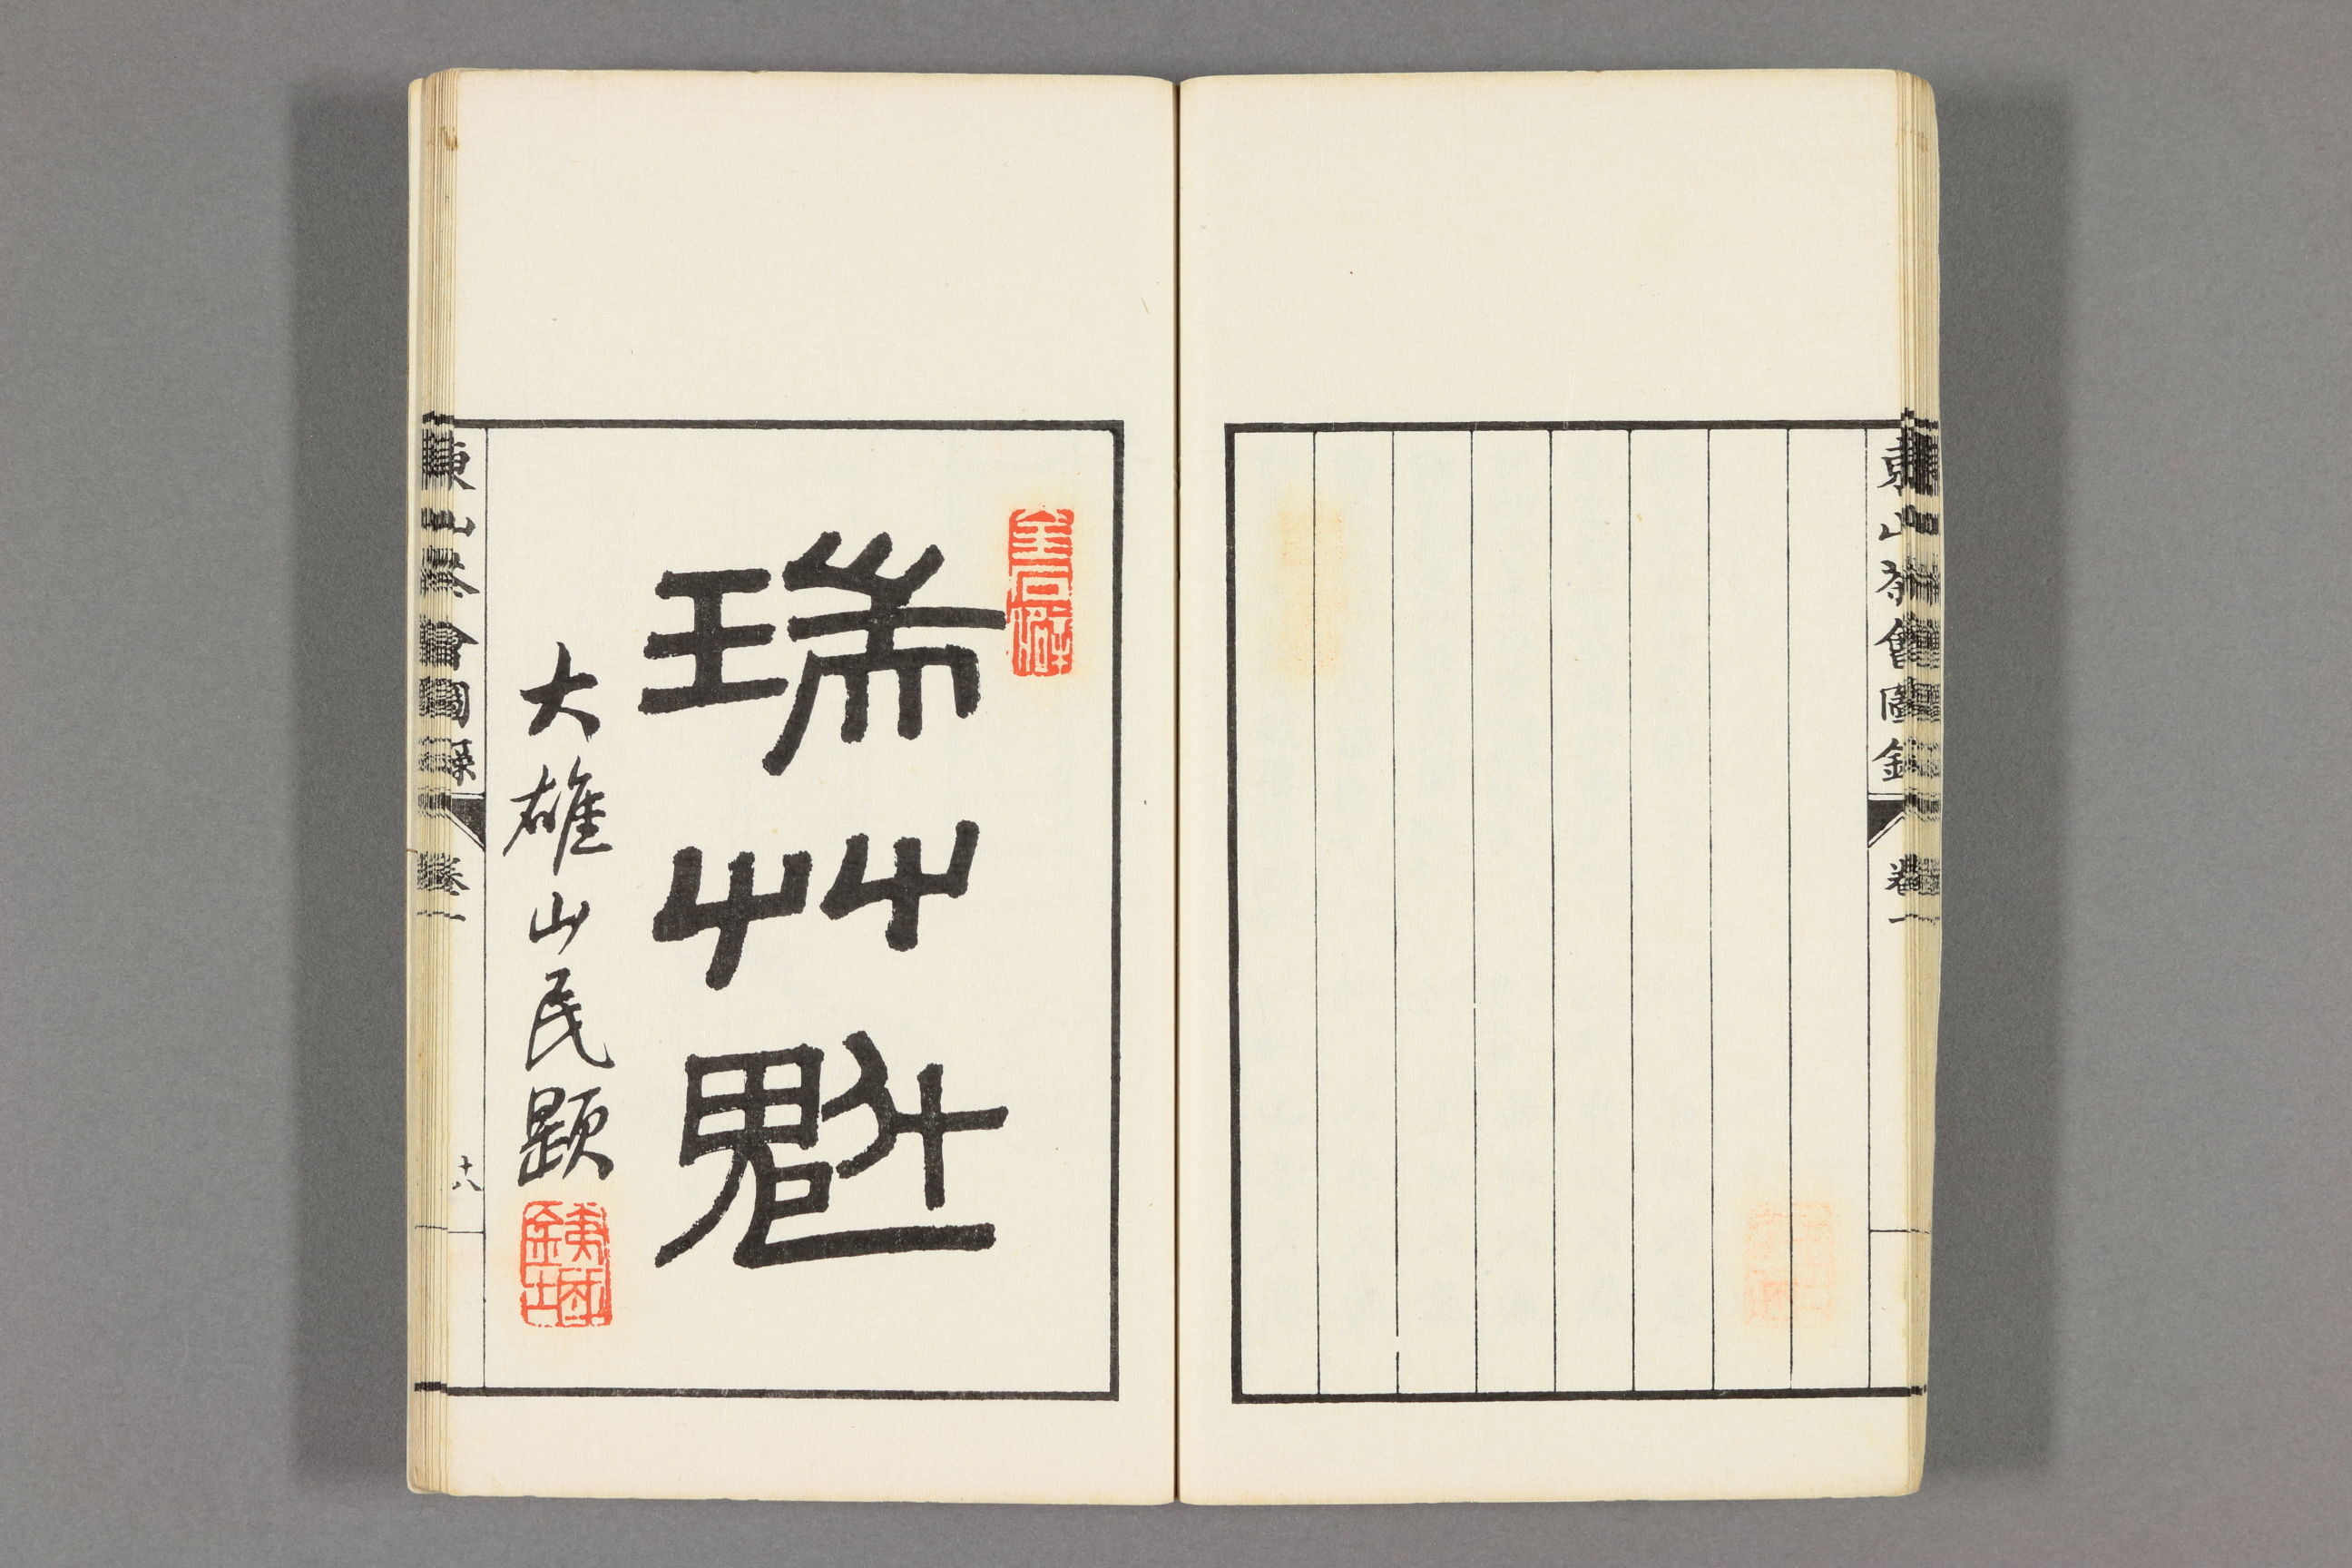 東山茶會圖錄
卷一
瑞艸魁
大雄山民題
東山茶會圖錄
卷一
十八